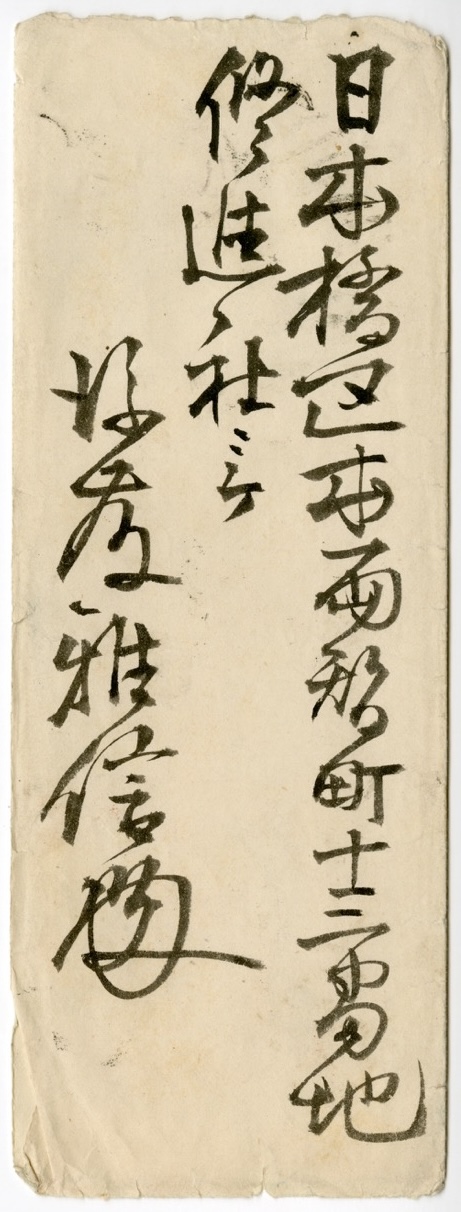 日本橋区本両替町十三番地
修進社ニテ
雅信様